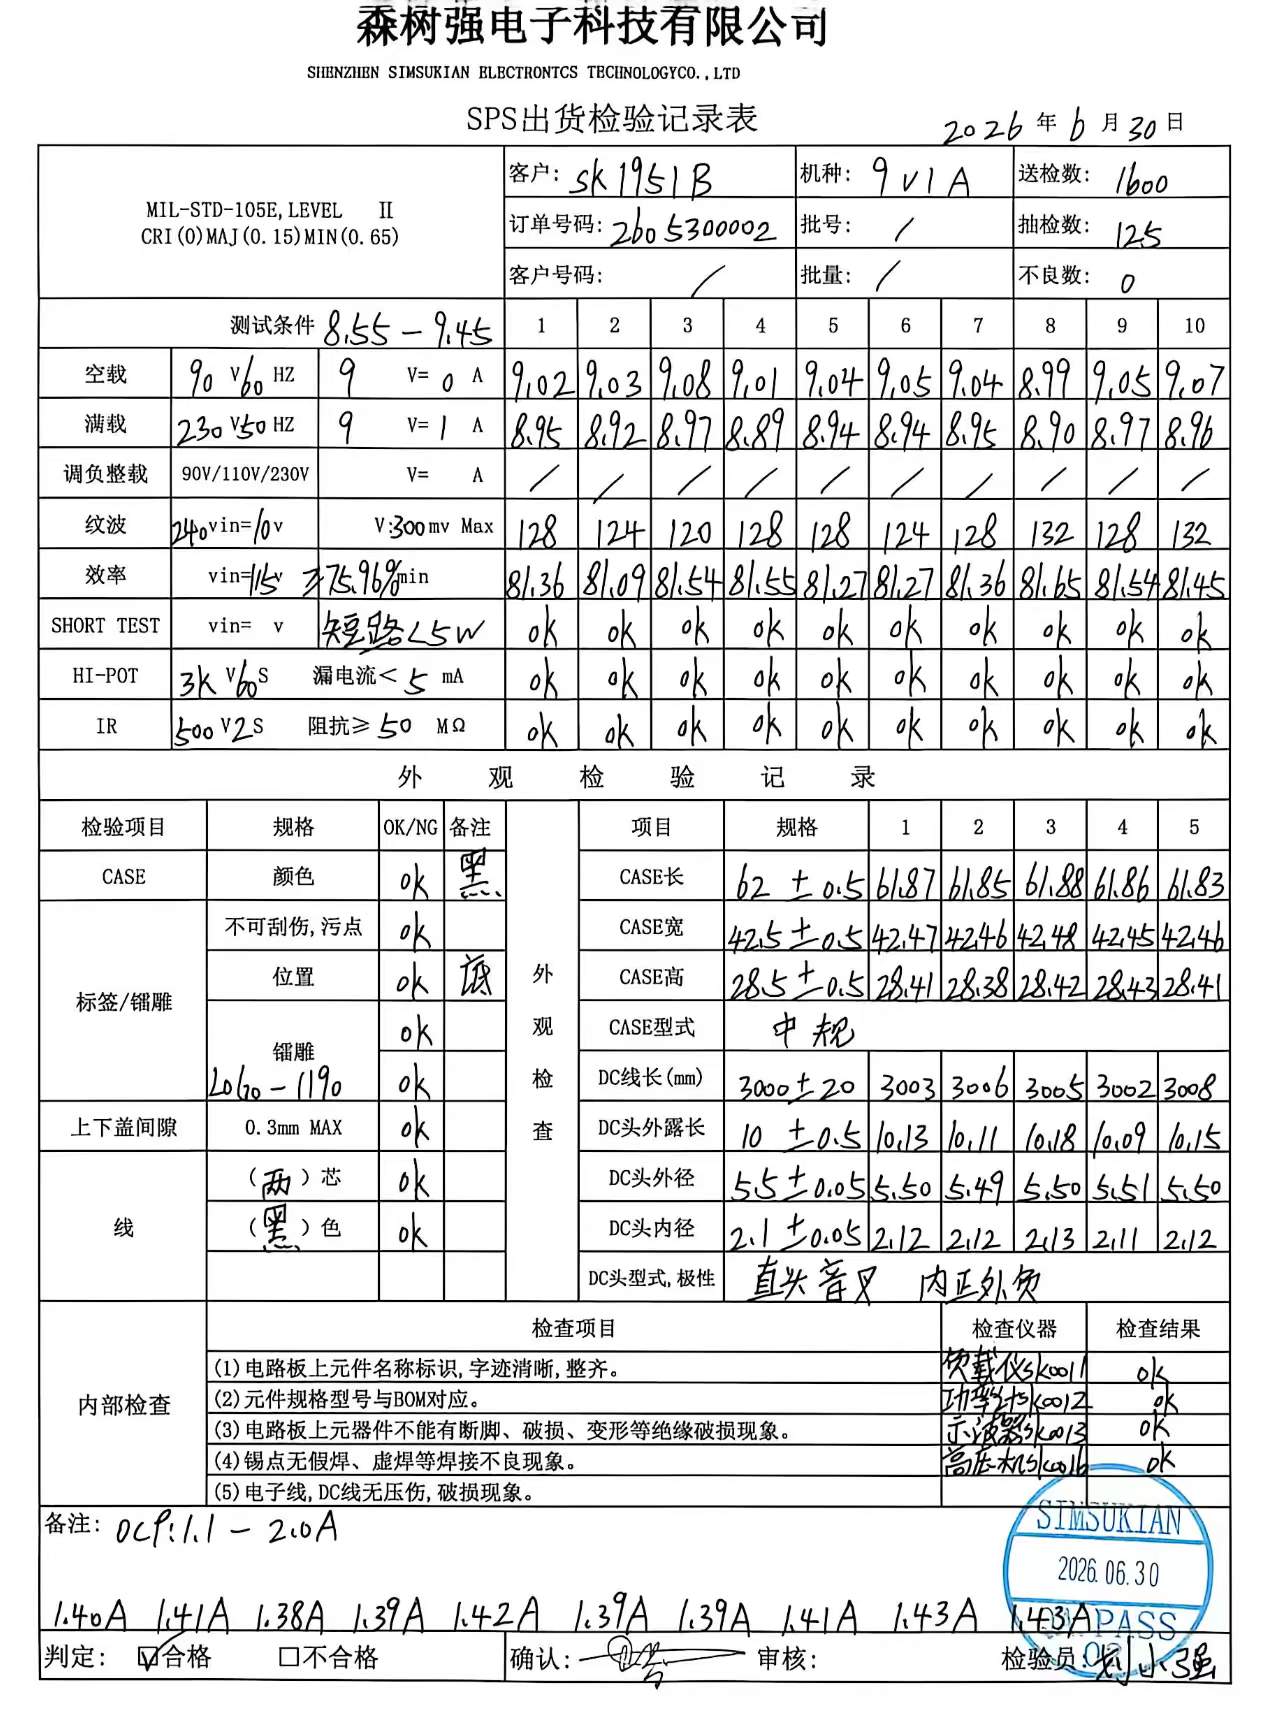 森树强电子科技有限公司
SHENZHEN SIMSUKIAN ELECTRONTCS TECHNOLOGYCO.,LTD
SPS出货检验记录表
2026 年 6 月 30 日
MIL-STD-105E,LEVEL Ⅱ
CRI(0)MAJ(0.15)MIN(0.65)
客户: SK1951B 机种: 9V1A 送检数: 1600
订单号码: 2605300002 批号: / 抽检数: 125
客户号码: / 批量: / 不良数: 0
测试条件 8.55-9.45 1 2 3 4 5 6 7 8 9 10
空载 90 V 60 HZ 9 V= 0 A 9.02 9.03 9.08 9.01 9.04 9.05 9.04 8.99 9.05 9.07
满载 230 V 50 HZ 9 V= 1 A 8.95 8.92 8.97 8.89 8.94 8.94 8.95 8.90 8.97 8.96
调负整载 90V/110V/230V V= A / / / / / / / / / /
纹波 240 vin=10v V:300mv Max 128 124 120 128 128 124 128 132 128 132
效率 vin=115v ≥75.96%min 81.36 81.09 81.54 81.55 81.27 81.27 81.36 81.65 81.54 81.45
SHORT TEST vin= v 短路<5W ok ok ok ok ok ok ok ok ok ok
HI-POT 3K V 60 S 漏电流< 5 mA ok ok ok ok ok ok ok ok ok ok
IR 500 V 2 S 阻抗≥ 50 MΩ ok ok ok ok ok ok ok ok ok ok
外 观 检 验 记 录
检验项目 规格 OK/NG 备注 项目 规格 1 2 3 4 5
CASE 颜色 ok 黑 CASE长 62 ±0.5 61.87 61.85 61.88 61.86 61.83
不可刮伤,污点 ok CASE宽 42.5±0.5 42.47 42.46 42.48 42.45 42.46
标签/镭雕 位置 ok 底 外观检查 CASE高 28.5±0.5 28.41 28.38 28.42 28.43 28.41
镭雕 ok CASE型式 中规
2060-1190 ok DC线长(mm) 3000±20 3003 3006 3005 3002 3008
上下盖间隙 0.3mm MAX ok DC头外露长 10 ±0.5 10.13 10.11 10.18 10.09 10.15
线 (两)芯 ok DC头外径 5.5±0.05 5.50 5.49 5.50 5.51 5.50
(黑)色 ok DC头内径 2.1±0.05 2.12 2.12 2.13 2.11 2.12
DC头型式,极性 直头音叉 内正外负
内部检查 检查项目 检查仪器 检查结果
(1)电路板上元件名称标识,字迹清晰,整齐。 负载仪SK0011 ok
(2)元件规格型号与BOM对应。 功率计SK0012 ok
(3)电路板上元器件不能有断脚、破损、变形等绝缘破损现象。 示波器SK0013 ok
(4)锡点无假焊、虚焊等焊接不良现象。 高压机SK0016 ok
(5)电子线,DC线无压伤,破损现象。
备注: OCP:1.1-2.0A
SIMSUKIAN
2026.06.30
PASS
1.40A 1.41A 1.38A 1.39A 1.42A 1.39A 1.39A 1.41A 1.43A 1.43A
判定: ☑合格 □不合格 确认: 审核: 检验员: 刘小强